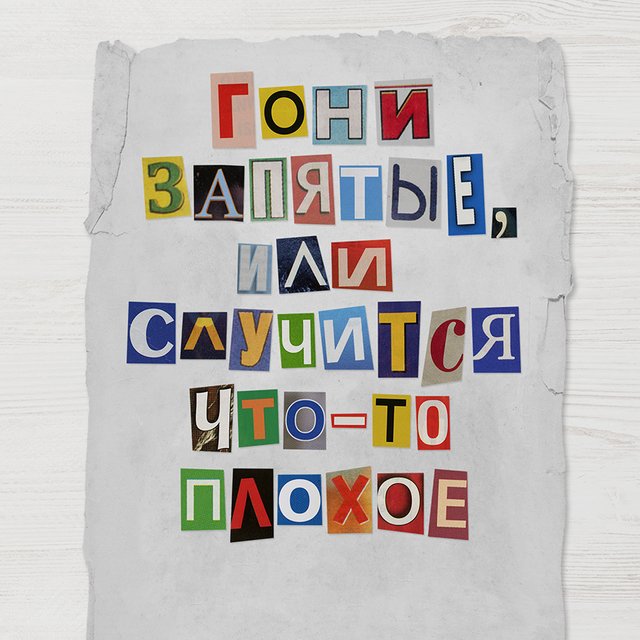 ГОНИ
ЗАПЯТЫЕ,
ИЛИ
СЛУЧИТСЯ
ЧТО-ТО
ПЛОХОЕ